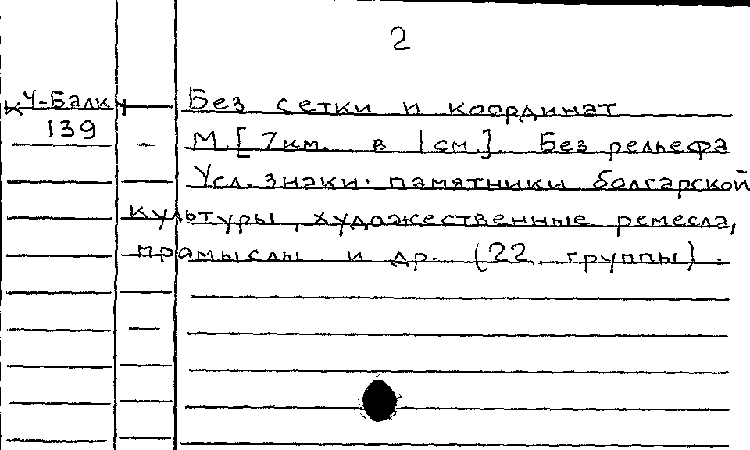 2
К Ч-Балк Без сетки и координат
139 М.[7км. в 1см.]. Без рельефа
Усл. знаки: памятники болгарской
культуры, художественные ремесла,
промыслы и др. (22 группы).